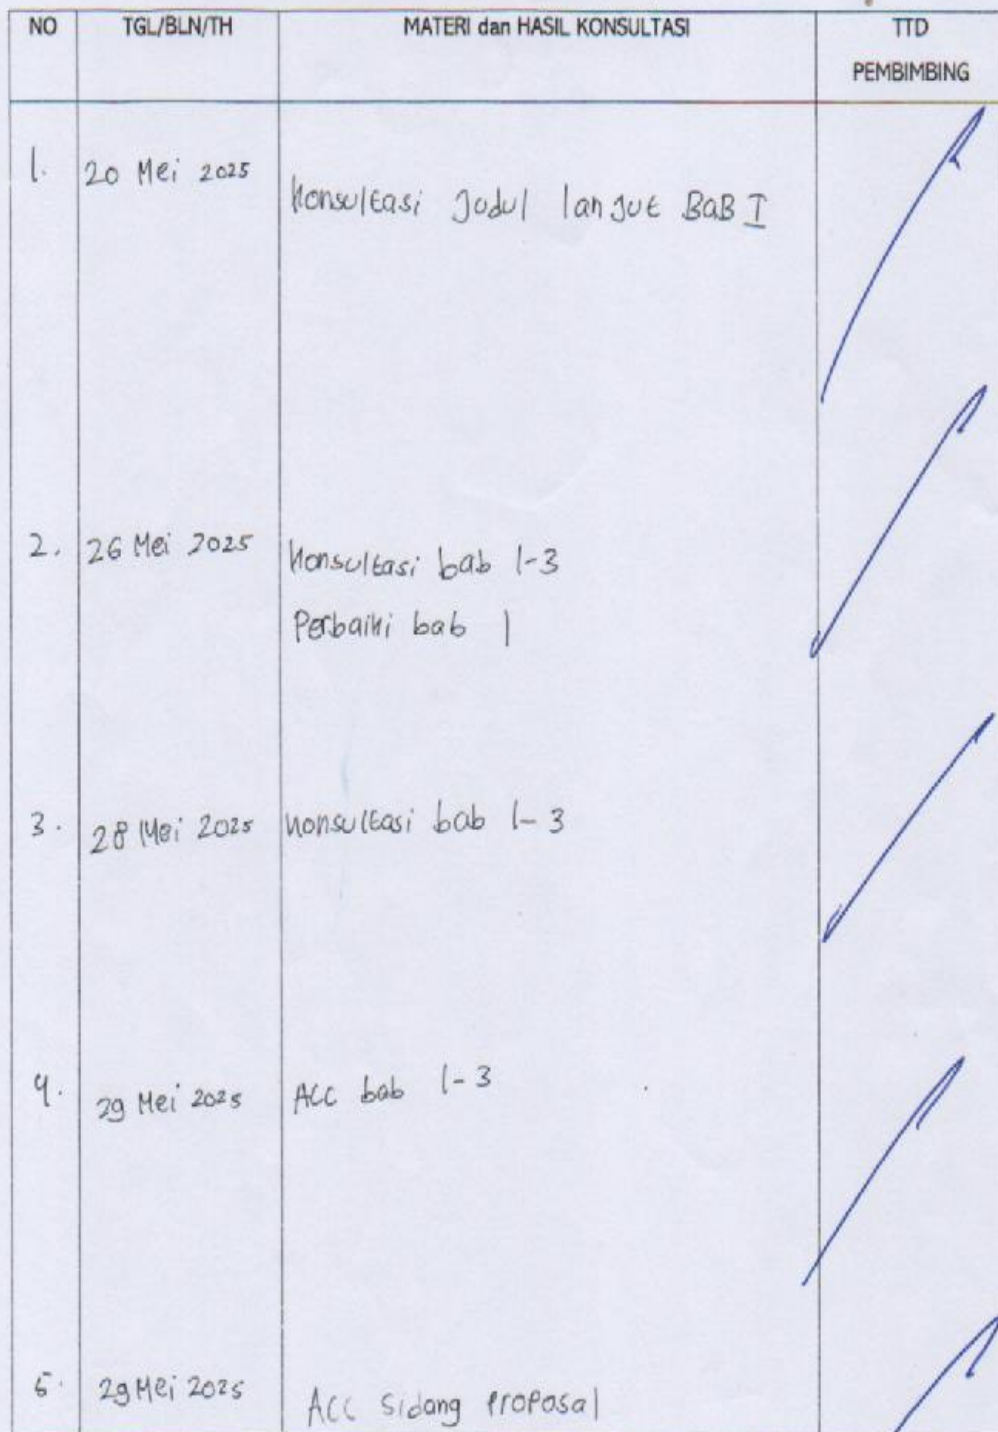 NO TGL/BLN/TH MATERI dan HASIL KONSULTASI TTD
PEMBIMBING
1. 20 Mei 2025
Konsultasi Judul lanjut BaB I
2. 26 Mei 2025 Konsultasi bab 1-3
Perbaiki bab 1
3. 28 Mei 2025 Konsultasi bab 1-3
4. 29 Mei 2025 ACC bab 1-3
5. 29 Mei 2025 ACC Sidang Proposal